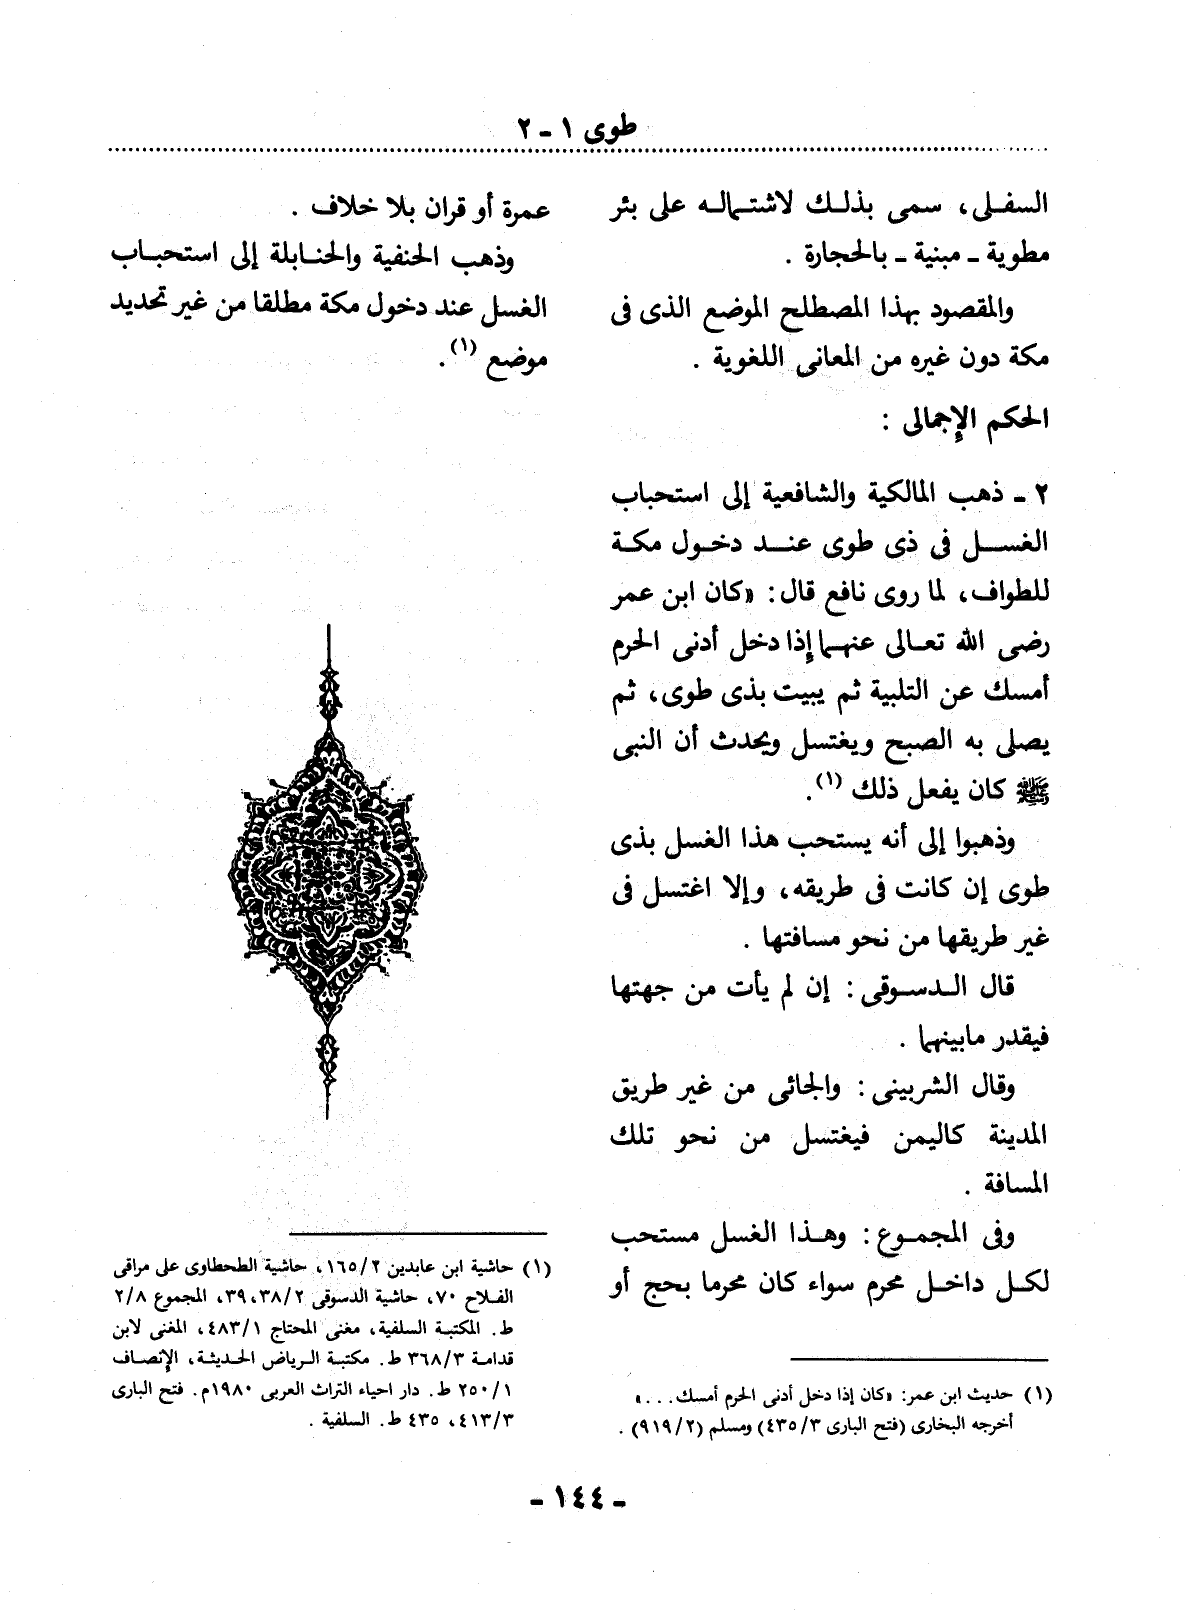 طوى ١ - ٢
السفلى، سمى بذلك لاشتماله على بئر
مطوية - مبنية - بالحجارة .
والمقصود بهذا المصطلح الموضع الذى فى
مكة دون غيره من المعانى اللغوية .
الحكم الإجمالى :
٢ - ذهب المالكية والشافعية إلى استحباب
الغسل فى ذى طوى عند دخول مكة
للطواف، لما روى نافع قال: «كان ابن عمر
رضى الله تعالى عنهما إذا دخل أدنى الحرم
أمسك عن التلبية ثم يبيت بذى طوى، ثم
يصلى به الصبح ويغتسل ويحدث أن النبى
ﷺ كان يفعل ذلك (١).
وذهبوا إلى أنه يستحب هذا الغسل بذى
طوى إن كانت فى طريقه، وإلا اغتسل فى
غير طريقها من نحو مسافتها .
قال الدسوقى: إن لم يأت من جهتها
فيقدر مابينهما .
وقال الشربينى: والجائى من غير طريق
المدينة كاليمن فيغتسل من نحو تلك
المسافة .
وفى المجموع: وهذا الغسل مستحب
لكل داخل محرم سواء كان محرما بحج أو
(١) حديث ابن عمر: «كان إذا دخل أدنى الحرم أمسك. . . »
أخرجه البخارى (فتح البارى ٤٣٥/٣) ومسلم (٩١٩/٢) .
عمرة أو قران بلا خلاف .
وذهب الحنفية والحنابلة إلى استحباب
الغسل عند دخول مكة مطلقا من غير تحديد
موضع (١).
(١) حاشية ابن عابدين ١٦٥/٢، حاشية الطحطاوى على مراقى
الفلاح ٧٠، حاشية الدسوقى ٣٨/٢، ٣٩، المجموع ٢/٨
ط. المكتبة السلفية، مغنى المحتاج ٤٨٣/١، المغنى لابن
قدامة ٣٦٨/٣ ط. مكتبة الرياض الحديثة، الإنصاف
٢٥٠/١ ط. دار احياء التراث العربى ١٩٨٠م. فتح البارى
٤١٣/٣، ٤٣٥ ط. السلفية .
- ١٤٤ -